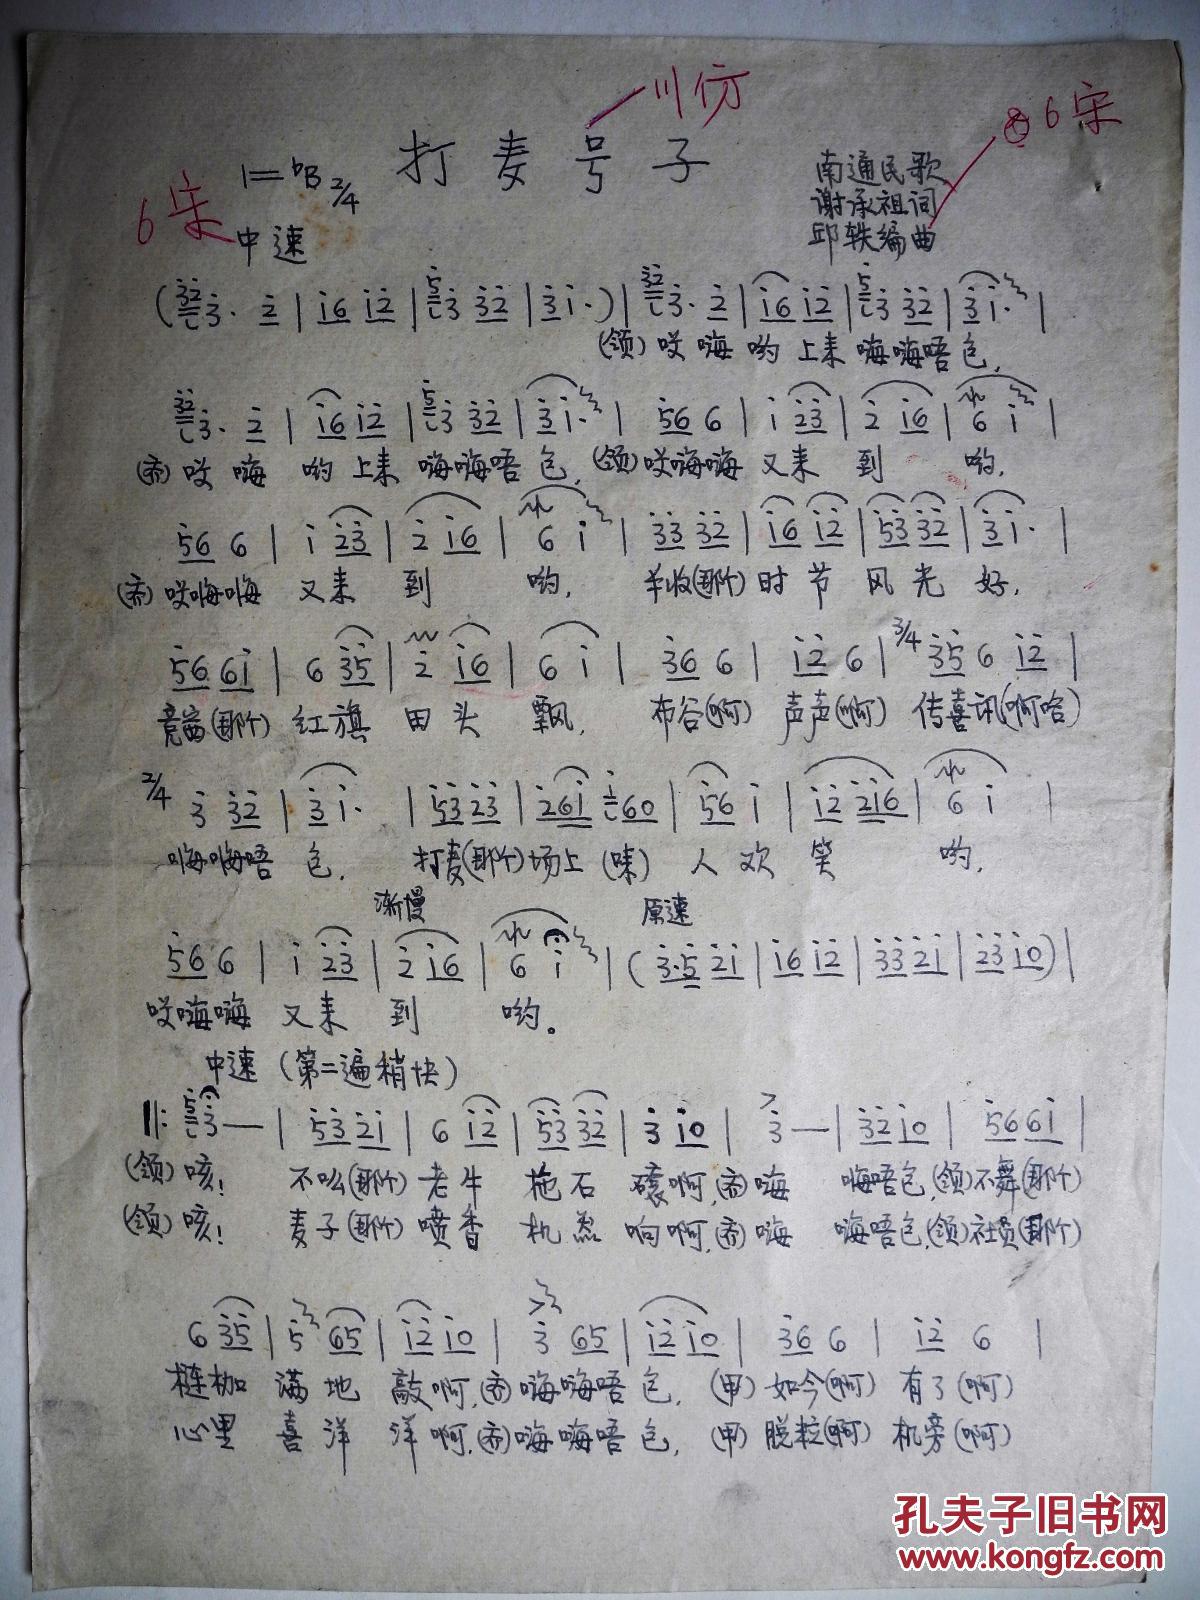 川仿
打麦号子
6宋
南通民歌
谢承祖词
邱轶编曲
1=♭B 2/4
6宋
中速
(3. 2 | 16 12 | 3 32 | 31·) | 3· 2 | 16 12 | 3 32 | 31· |
(领)哎嗨 哟 上来 嗨嗨唔包,
3· 2 | 16 12 | 3 32 | 31· | 56 6 | 1 23 | 2 16 | 6 1 |
(齐)哎嗨 哟 上来 嗨嗨唔包,(领)哎嗨嗨 又来 到 哟,
56 6 | 1 23 | 2 16 | 6 1 | 33 32 | 16 12 | 53 32 | 31· |
(齐)哎嗨嗨 又来 到 哟, 羊收(那个)时节 风光 好,
56 61 | 6 35 | 2 16 | 6 1 | 36 6 | 12 6 | 3/4 35 6 12 |
(那个) 红旗 田头 飘, 布谷(啊) 声声(啊) 传喜讯(啊哈)
2/4 3 32 | 31· | 53 23 | 261 60 | 56 1 | 12 216 | 6 1 |
嗨嗨唔 包, 打麦(那个)场上 人 欢 笑 哟,
渐慢 原速
56 6 | 1 23 | 2 16 | 6 1 | (3·5 21 | 16 12 | 33 21 | 23 10) |
哎嗨嗨 又来 到 哟。
中速(第二遍稍快)
‖: 3 — | 53 21 | 6 12 | 53 32 | 3 10 | 3 — | 32 10 | 56 61 |
(领)咳! 不吆(那个)老牛 拖石 磙啊,(齐)嗨 嗨唔包,(领)不舞(那个)
(领)咳! 麦子(那个)喷香 机器 响啊,(齐)嗨 嗨唔包,(领)社员(那个)
6 35 | 5 65 | 12 10 | 3 65 | 12 10 | 36 6 | 12 6 |
梿枷 满地 敲啊,(齐)嗨嗨唔包, (甲)如今(啊) 有了(啊)
心里 喜洋 洋啊,(齐)嗨嗨唔包, (甲)脱粒(啊) 机旁(啊)
孔夫子旧书网
www.kongfz.com